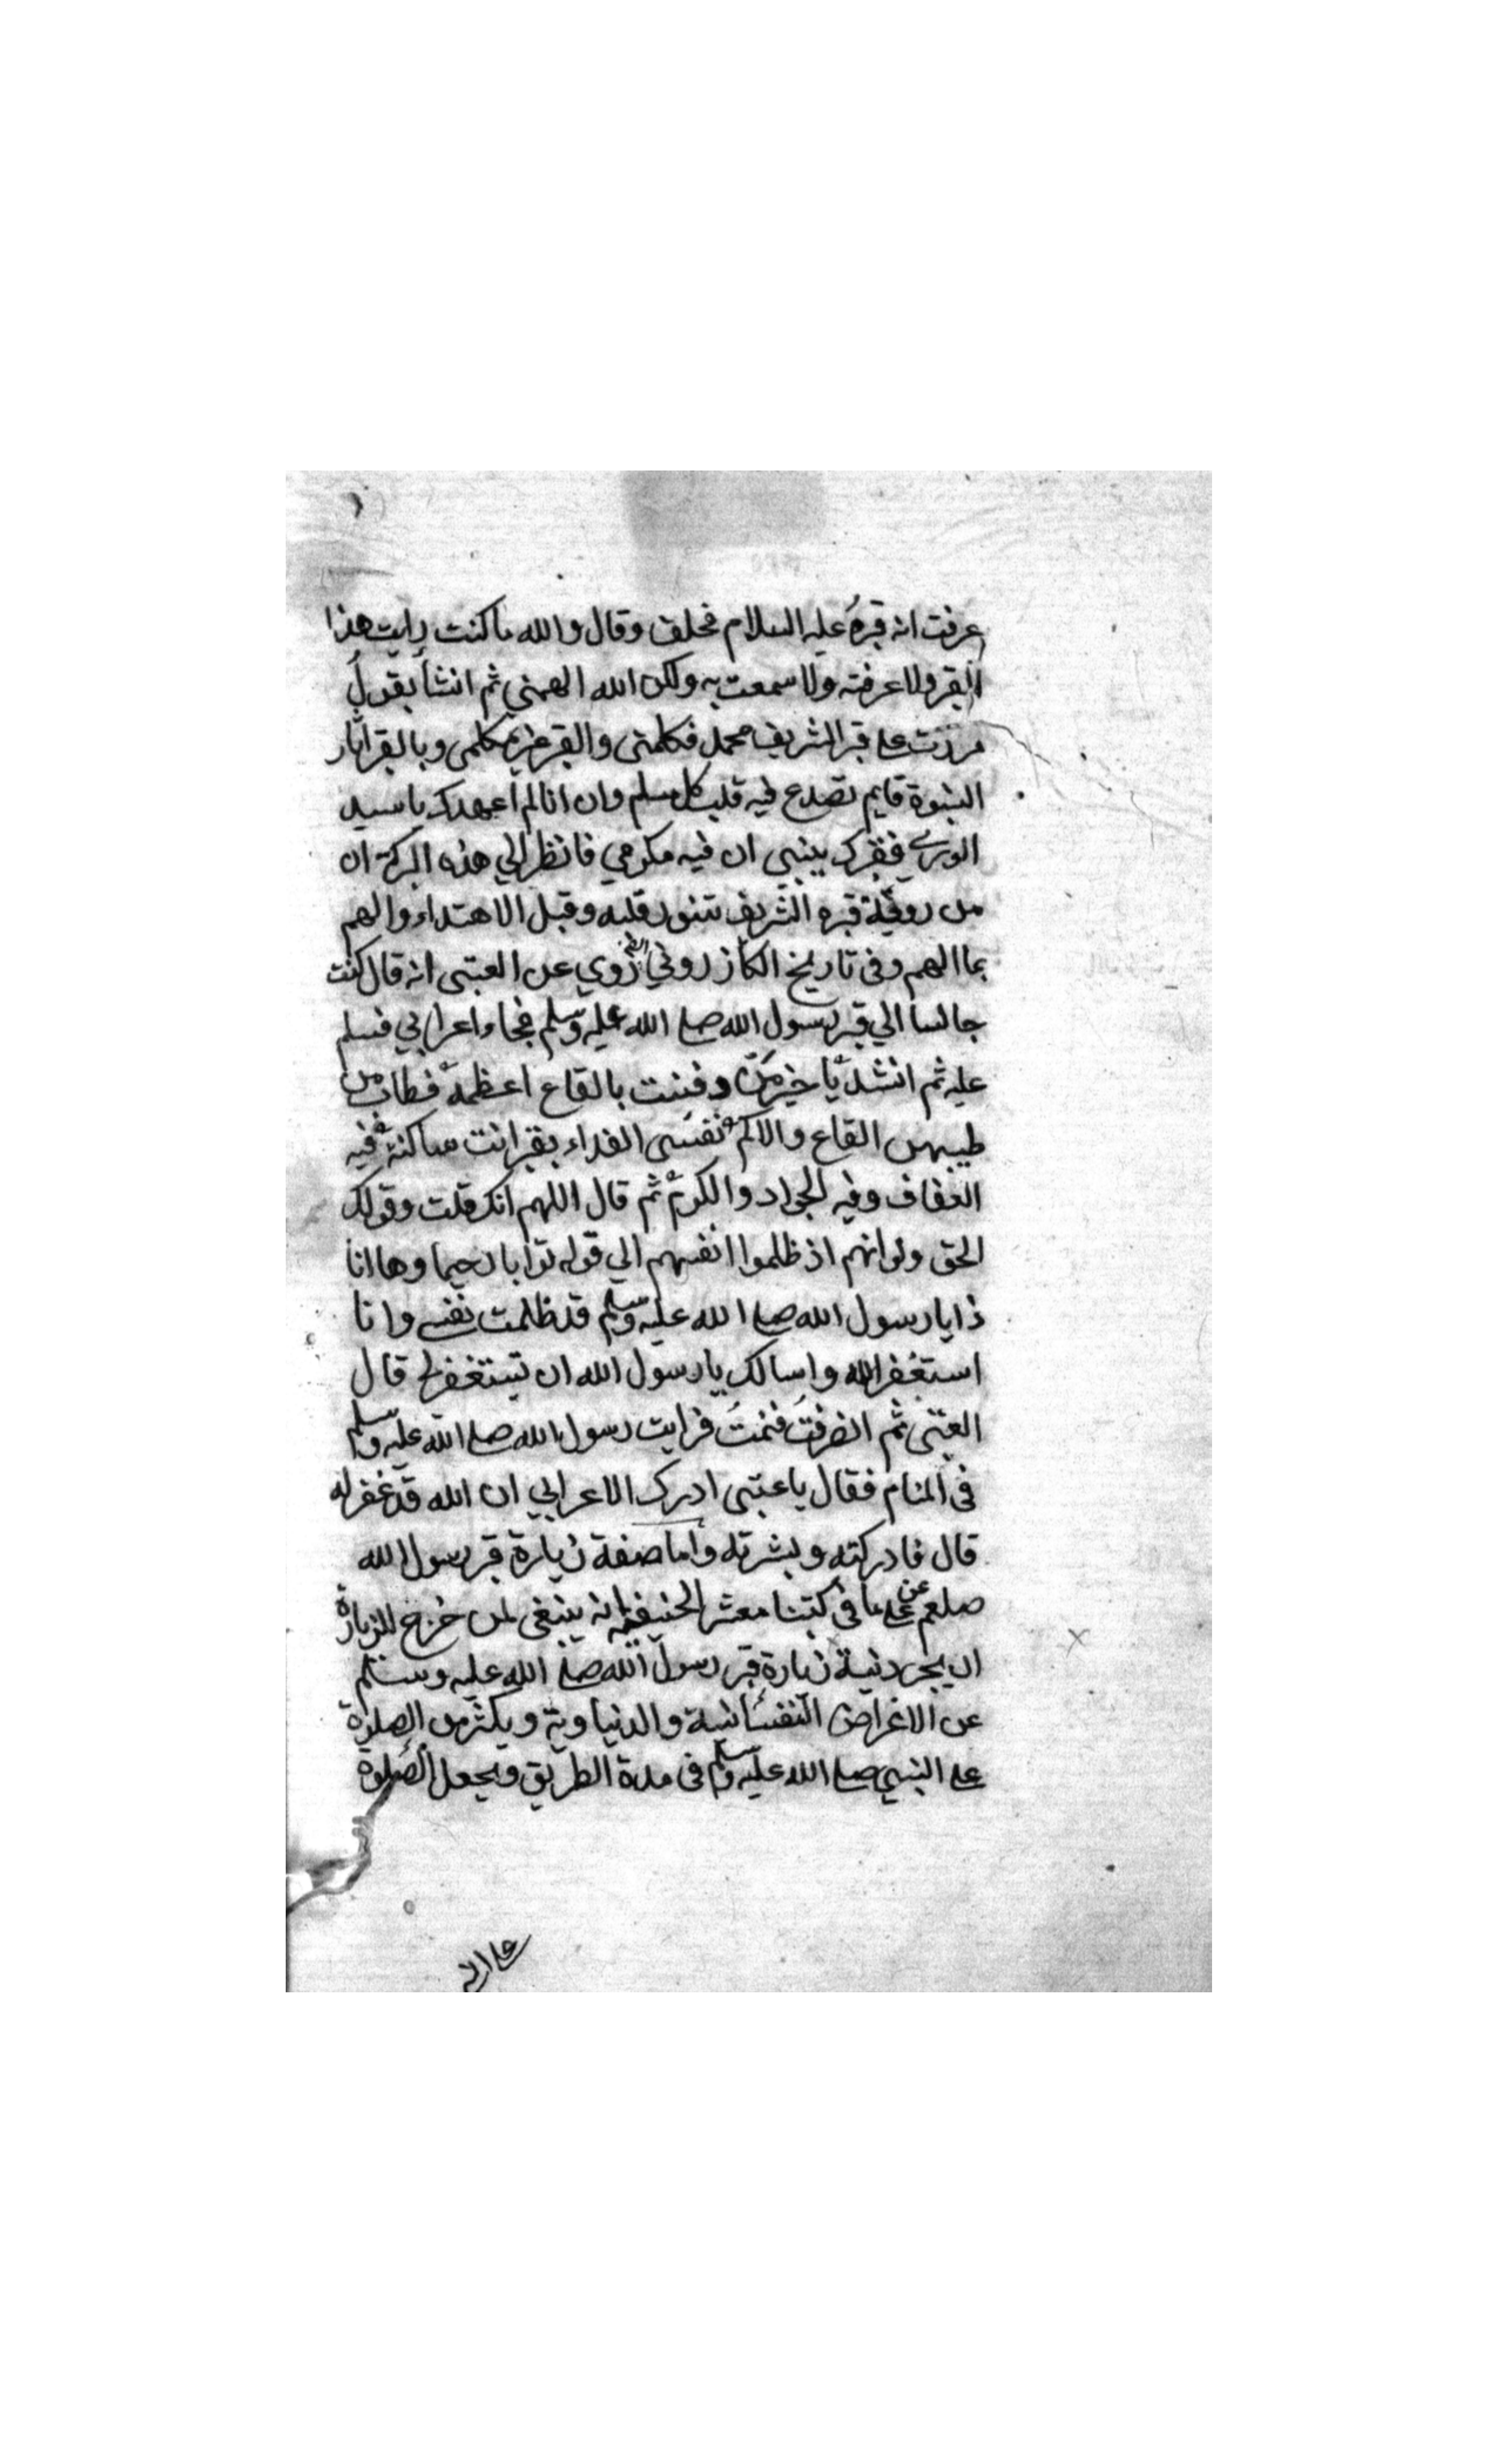 عرفت انه قبره عليه السلام فحلف وقال والله ما كنت رايت هذا
القبر ولا عرفته ولا سمعت به ولكن الله الهمني ثم انشأ يقول
مررت على قبر الشريف محمد فكلمنى والقبر غير مكلمى وبالقبر اثار
النبوة قايم تصدع فيه قلب كل مسلم وان انا لم اعهدك يا سيد
الورى فقبرك ينبى ان فيه مكرمي فانظر الي هذه البركة ان
من روية قبره الشريف تنور قلبه وقبل الاهتداء والهم
بما الهم وفى تاريخ الكازروني روي عن العتبى انه قال كنت
جالسا الي قبر رسول الله صلى الله عليه وسلم فجاء اعرابي فسلم
عليه ثم انشد يا خير من دفنت بالقاع اعظمه فطاب من
طيبهن القاع والاكم نفسى الفداء بقبر انت ساكنه فيه
العفاف وفيه الجواد والكرم ثم قال اللهم انك قلت وقولك
الحق ولو انهم اذ ظلموا انفسهم الي قوله توابا رحيما وها انا
ذا يا رسول الله صلى الله عليه وسلم قد ظلمت نفسي وانا
استغفر الله واسالك يا رسول الله ان تستغفر لي قال
العتبى ثم انصرفت فنمت فرايت رسول الله صلى الله عليه وسلم
فى المنام فقال يا عتبى ادرك الاعرابي ان الله قد غفر له
قال فادركته وبشرته واما صفة زيارة قبر رسول الله
صلعم على ما فى كتبنا معشر الحنيفية انه ينبغى لمن خرج للزيارة
ان يجرد نية زيارة قبر رسول الله صلى الله عليه وسلم
عن الاغراض النفسانية والدنياوية ويكثر من الصلوة
على النبي صلى الله عليه وسلم فى مدة الطريق ويجعل الصلوة